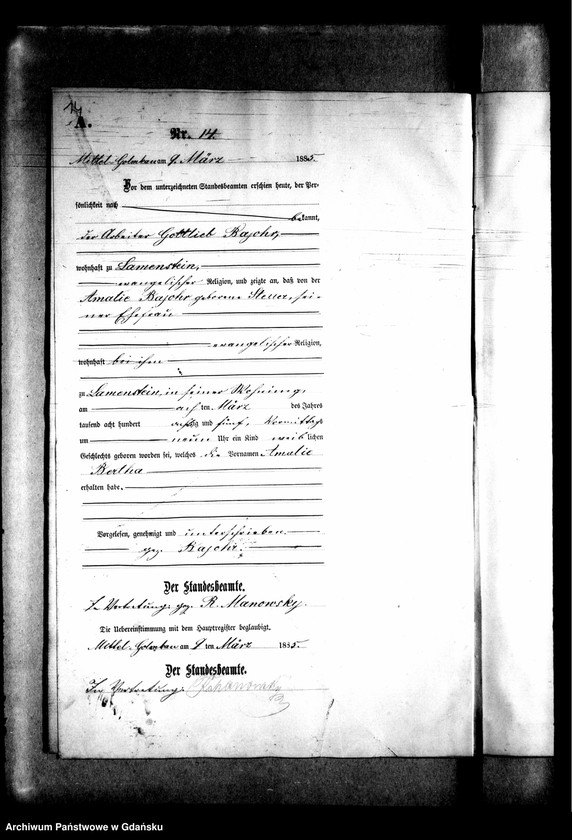 A.
Nr. 14.
Mittel Golmkau am 9. März 1885.
Vor dem unterzeichneten Standesbeamten erschien heute, der Per-
sönlichkeit nach
bekannt,
der Arbeiter Gottlieb Bajohr,
wohnhaft zu Lamenstein,
evangelischer Religion, und zeigte an, daß von der
Amalie Bajohr geborene, sei-
ner Ehefrau
evangelischer Religion,
wohnhaft bei ihm
zu Lamenstein, in seiner Wohnung,
am acht ten März des Jahres
tausend acht hundert achtzig und fünf, Vormittags
um neun Uhr ein Kind weib lichen
Geschlechts geboren worden sei, welches die Vornamen Amalie
Bertha
erhalten habe.
Vorgelesen, genehmigt und unterschrieben
gez. Bajohr.
Der Standesbeamte.
In Vertretung gez. R. Manowsky.
Die Uebereinstimmung mit dem Hauptregister beglaubigt.
Mittel Golmkau am 9 ten März 1885.
Der Standesbeamte.
In Vertretung.
Archiwum Państwowe w Gdańsku